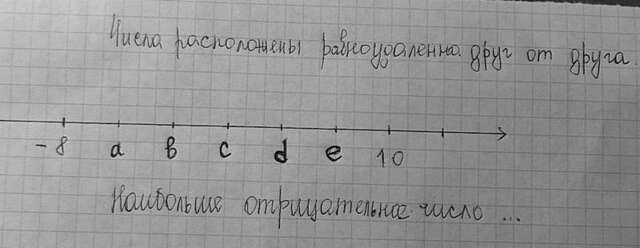 Числа расположены равноудаленно друг от друга.
-8 a b c d e 10
Наибольшее отрицательное число ...